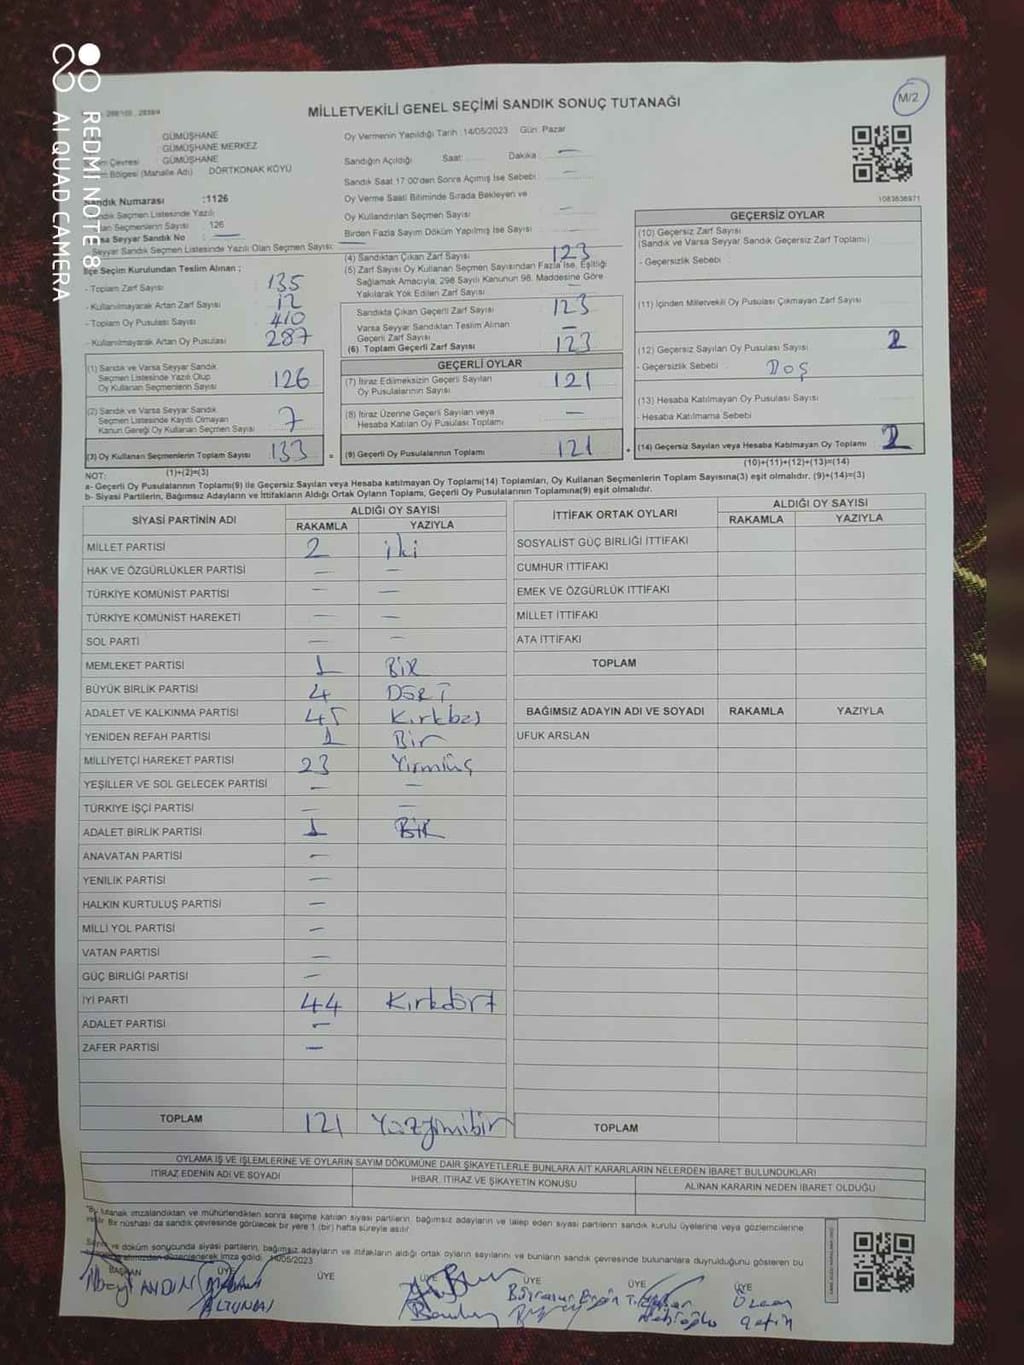 REDMI NOTE 8
AI QUAD CAMERA
M/2
MİLLETVEKİLİ GENEL SEÇİMİ SANDIK SONUÇ TUTANAĞI
GÜMÜŞHANE
GÜMÜŞHANE MERKEZ
GÜMÜŞHANE
Bölgesi (Mahalle Adı) DÖRTKONAK KÖYÜ
Sandık Numarası :1126
Sandık Seçmen Listesinde Yazılı
Olan Seçmenlerin Sayısı 126
Varsa Seyyar Sandık No
Seyyar Sandık Seçmen Listesinde Yazılı Olan Seçmen Sayısı:
İlçe Seçim Kurulundan Teslim Alınan ;
- Toplam Zarf Sayısı 135
- Kullanılmayarak Artan Zarf Sayısı 12
- Toplam Oy Pusulası Sayısı 410
- Kullanılmayarak Artan Oy Pusulası 287
(1) Sandık ve Varsa Seyyar Sandık
Seçmen Listesinde Yazılı Olup
Oy Kullanan Seçmenlerin Sayısı 126
(2) Sandık ve Varsa Seyyar Sandık
Seçmen Listesinde Kayıtlı Olmayan
Kanun Gereği Oy Kullanan Seçmen Sayısı 7
(3) Oy Kullanan Seçmenlerin Toplam Sayısı 133
(1)+(2)=(3)
Oy Vermenin Yapıldığı Tarih : 14/05/2023 Gün: Pazar
Sandığın Açıldığı Saat: Dakika :
Sandık Saat 17:00'den Sonra Açılmış İse Sebebi :
Oy Verme Saati Bitiminde Sırada Bekleyen ve
Oy Kullandırılan Seçmen Sayısı
Birden Fazla Sayım Döküm Yapılmış İse Sayısı :
(4) Sandıktan Çıkan Zarf Sayısı 123
(5) Zarf Sayısı Oy Kullanan Seçmen Sayısından Fazla İse, Eşitliği
Sağlamak Amacıyla, 298 Sayılı Kanunun 98. Maddesine Göre
Yakılarak Yok Edilen Zarf Sayısı
Sandıkta Çıkan Geçerli Zarf Sayısı 123
Varsa Seyyar Sandıktan Teslim Alınan
Geçerli Zarf Sayısı
(6) Toplam Geçerli Zarf Sayısı 123
GEÇERLİ OYLAR
(7) İtiraz Edilmeksizin Geçerli Sayılan
Oy Pusulalarının Sayısı 121
(8) İtiraz Üzerine Geçerli Sayılan veya
Hesaba Katılan Oy Pusulası Toplamı
(9) Geçerli Oy Pusulalarının Toplamı 121
1083636971
GEÇERSİZ OYLAR
(10) Geçersiz Zarf Sayısı
(Sandık ve Varsa Seyyar Sandık Geçersiz Zarf Toplamı)
- Geçersizlik Sebebi
(11) İçinden Milletvekili Oy Pusulası Çıkmayan Zarf Sayısı
(12) Geçersiz Sayılan Oy Pusulası Sayısı 2
- Geçersizlik Sebebi : Doş
(13) Hesaba Katılmayan Oy Pusulası Sayısı
- Hesaba Katılmama Sebebi
(14) Geçersiz Sayılan veya Hesaba Katılmayan Oy Toplamı 2
(10)+(11)+(12)+(13)=(14)
NOT:
a- Geçerli Oy Pusulalarının Toplamı(9) ile Geçersiz Sayılan veya Hesaba katılmayan Oy Toplamı(14) Toplamları, Oy Kullanan Seçmenlerin Toplam Sayısına(3) eşit olmalıdır. (9)+(14)=(3)
b- Siyasi Partilerin, Bağımsız Adayların ve İttifakların Aldığı Ortak Oyların Toplamı, Geçerli Oy Pusulalarının Toplamına(9) eşit olmalıdır.
SİYASİ PARTİNİN ADI ALDIĞI OY SAYISI
RAKAMLA YAZIYLA
MİLLET PARTİSİ 2 iki
HAK VE ÖZGÜRLÜKLER PARTİSİ —
TÜRKİYE KOMÜNİST PARTİSİ —
TÜRKİYE KOMÜNİST HAREKETİ —
SOL PARTİ —
MEMLEKET PARTİSİ 1 BİR
BÜYÜK BİRLİK PARTİSİ 4 DÖRT
ADALET VE KALKINMA PARTİSİ 45 Kırkbeş
YENİDEN REFAH PARTİSİ 1 Bir
MİLLİYETÇİ HAREKET PARTİSİ 23 Yirmiüç
YEŞİLLER VE SOL GELECEK PARTİSİ —
TÜRKİYE İŞÇİ PARTİSİ —
ADALET BİRLİK PARTİSİ 1 BİR
ANAVATAN PARTİSİ —
YENİLİK PARTİSİ —
HALKIN KURTULUŞ PARTİSİ —
MİLLİ YOL PARTİSİ —
VATAN PARTİSİ —
GÜÇ BİRLİĞİ PARTİSİ —
İYİ PARTİ 44 Kırkdört
ADALET PARTİSİ —
ZAFER PARTİSİ —
TOPLAM 121 Yüzyirmibir
İTTİFAK ORTAK OYLARI ALDIĞI OY SAYISI
RAKAMLA YAZIYLA
SOSYALİST GÜÇ BİRLİĞİ İTTİFAKI
CUMHUR İTTİFAKI
EMEK VE ÖZGÜRLÜK İTTİFAKI
MİLLET İTTİFAKI
ATA İTTİFAKI
TOPLAM
BAĞIMSIZ ADAYIN ADI VE SOYADI RAKAMLA YAZIYLA
UFUK ARSLAN
TOPLAM
OYLAMA İŞ VE İŞLEMLERİNE VE OYLARIN SAYIM DÖKÜMÜNE DAİR ŞİKAYETLERLE BUNLARA AİT KARARLARIN NELERDEN İBARET BULUNDUKLARI
İTİRAZ EDENİN ADI VE SOYADI İHBAR, İTİRAZ VE ŞİKAYETİN KONUSU ALINAN KARARIN NEDEN İBARET OLDUĞU
"Bu tutanak imzalandıktan ve mühürlendikten sonra seçime katılan siyasi partilerin, bağımsız adayların ve talep eden siyasi partilerin sandık kurulu üyelerine veya gözlemcilerine
verilir. Bir nüshası da sandık çevresinde görülecek bir yere 1 (bir) hafta süreyle asılır.
Sayım ve döküm sonucunda siyasi partilerin, bağımsız adayların ve ittifakların aldığı ortak oyların sayılarını ve bunların sandık çevresinde bulunanlara duyrulduğunu gösteren bu
düzenlenerek imza edildi. 14/05/2023
BAŞKAN ÜYE ÜYE ÜYE ÜYE ÜYE ÜYE
AYDIN ALTUNBAŞ
Özcan
Çetin